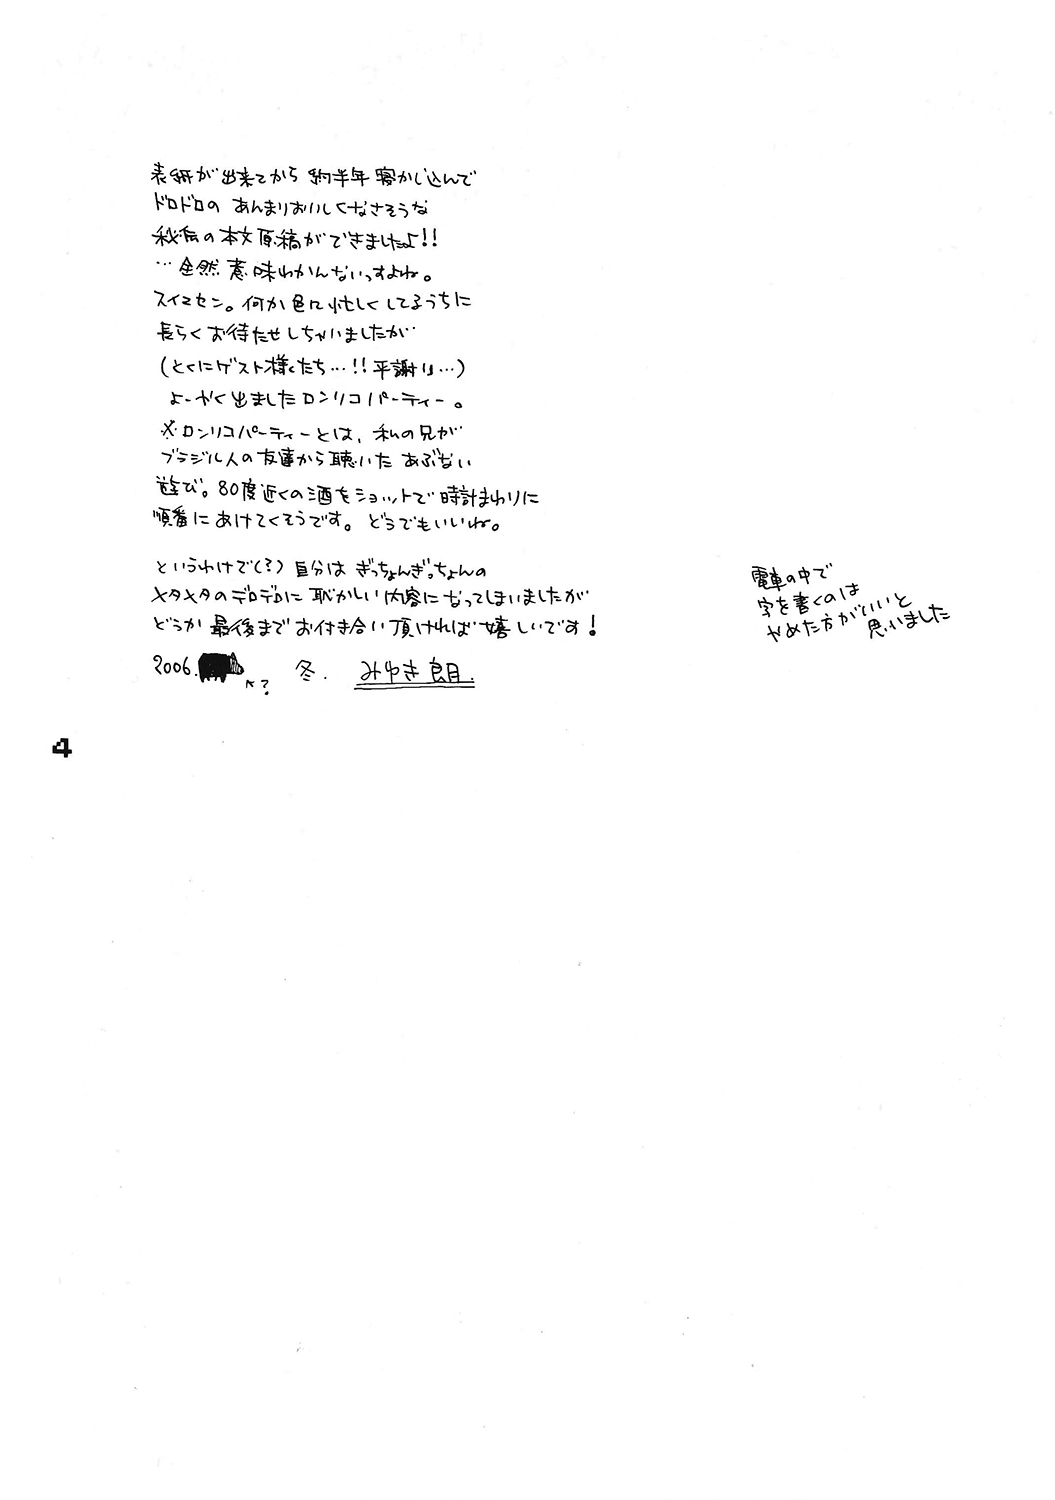 表紙が出来てから約半年寝かし込んで
ドロドロのあんまりおいしくなさそうな
秘伝の本文原稿ができましたよ!!
…全然意味わかんないっすよね。
スイマセン。何か色々忙しくしてるうちに
長らくお待たせしちゃいましたが
(とくにゲスト様たち…!!平謝り…)
よーやく出ましたロンリコパーティー。
※ロンリコパーティーとは、私の兄が
ブラジル人の友達から聴いたあぶない
遊び。80度近くの酒をショットで時計まわりに
順番にあけてくそうです。どうでもいいね。
というわけで(?)自分はぎっちょんぎっちょんの
メタメタのデロデロに恥かしい内容になってしまいましたが
どうか最後までお付き合い頂ければ嬉しいです!
2006. ←? 冬. みゆき朗.
電車の中で
字を書くのは
やめた方がいいと
思いました
4